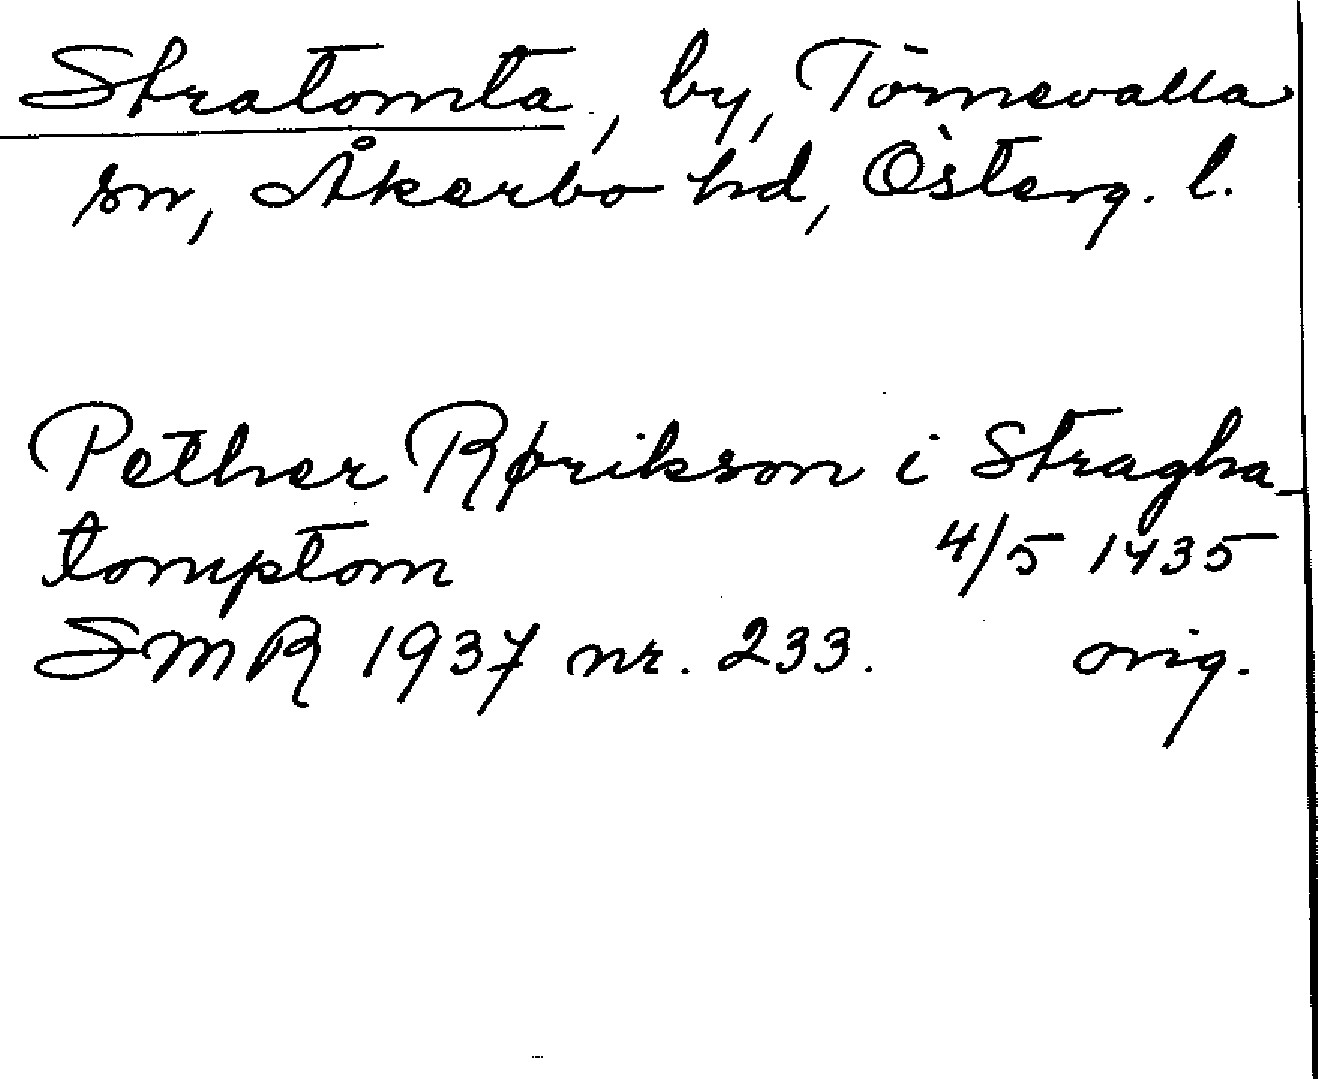 Stratomta, by, Törnevalla
sn, Åkerbo hd, Österg. l.
Pether Rørikson i Stragha-
tomptom 4/5 1435
SMR 1937 nr. 233. orig.